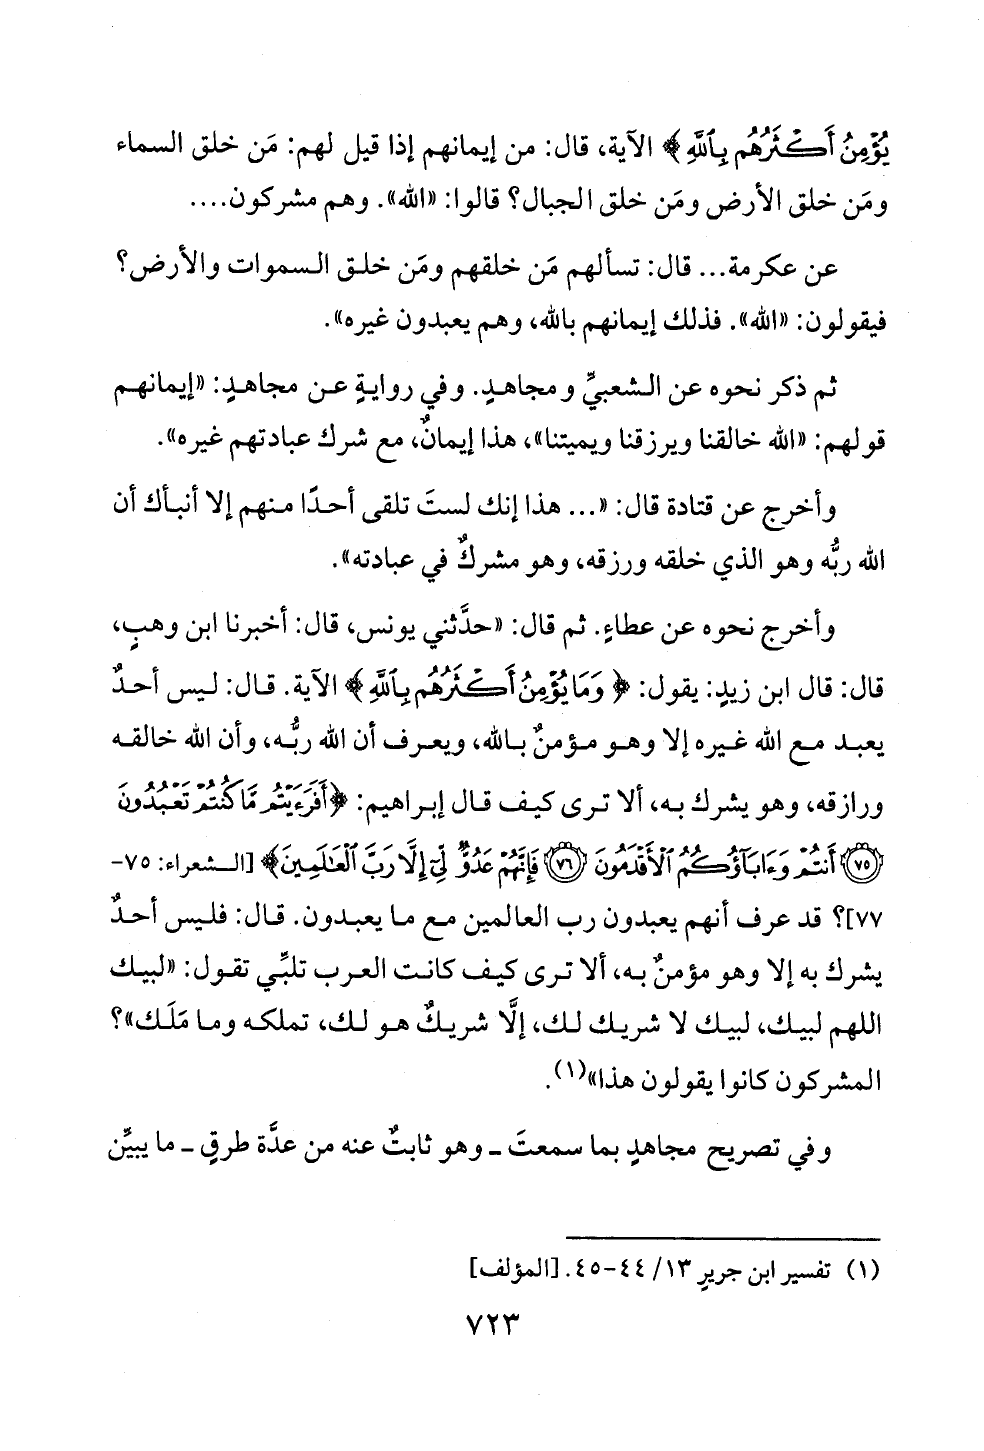 يُؤْمِنُ أَكْثَرُهُم بِٱللَّهِ﴾ الآية، قال: من إيمانهم إذا قيل لهم: مَن خلق السماء
ومَن خلق الأرض ومَن خلق الجبال؟ قالوا: «الله». وهم مشركون....
عن عكرمة... قال: تسألهم مَن خلقهم ومَن خلق السموات والأرض؟
فيقولون: «الله». فذلك إيمانهم بالله، وهم يعبدون غيره».
ثم ذكر نحوه عن الشعبيِّ ومجاهدٍ. وفي روايةٍ عن مجاهدٍ: «إيمانهم
قولهم: «الله خالقنا ويرزقنا ويميتنا»، هذا إيمانٌ، مع شرك عبادتهم غيره».
وأخرج عن قتادة قال: «... هذا إنك لستَ تلقى أحدًا منهم إلا أنبأك أن
الله ربُّه وهو الذي خلقه ورزقه، وهو مشركٌ في عبادته».
وأخرج نحوه عن عطاءٍ. ثم قال: «حدَّثني يونس، قال: أخبرنا ابن وهبٍ،
قال: قال ابن زيدٍ: يقول: ﴿وَمَا يُؤْمِنُ أَكْثَرُهُم بِٱللَّهِ﴾ الآية. قال: ليس أحدٌ
يعبد مع الله غيره إلا وهو مؤمنٌ بالله، ويعرف أن الله ربُّه، وأن الله خالقه
ورازقه، وهو يشرك به، ألا ترى كيف قال إبراهيم: ﴿أَفَرَءَيْتُم مَّا كُنتُمْ تَعْبُدُونَ
﴿٧٥﴾ أَنتُمْ وَءَابَآؤُكُمُ ٱلْأَقْدَمُونَ ﴿٧٦﴾ فَإِنَّهُمْ عَدُوٌّ لِّيٓ إِلَّا رَبَّ ٱلْعَٰلَمِينَ﴾ [الشعراء: ٧٥-
٧٧]؟ قد عرف أنهم يعبدون رب العالمين مع ما يعبدون. قال: فليس أحدٌ
يشرك به إلا وهو مؤمنٌ به، ألا ترى كيف كانت العرب تلبِّي تقول: «لبيك
اللهم لبيك، لبيك لا شريك لك، إلَّا شريكٌ هو لك، تملكه وما مَلَك»؟
المشركون كانوا يقولون هذا»(١).
وفي تصريح مجاهدٍ بما سمعتَ ـ وهو ثابتٌ عنه من عدَّة طرقٍ ـ ما يبيِّن
(١) تفسير ابن جريرٍ ١٣/ ٤٤-٤٥. [المؤلف]
٧٢٣